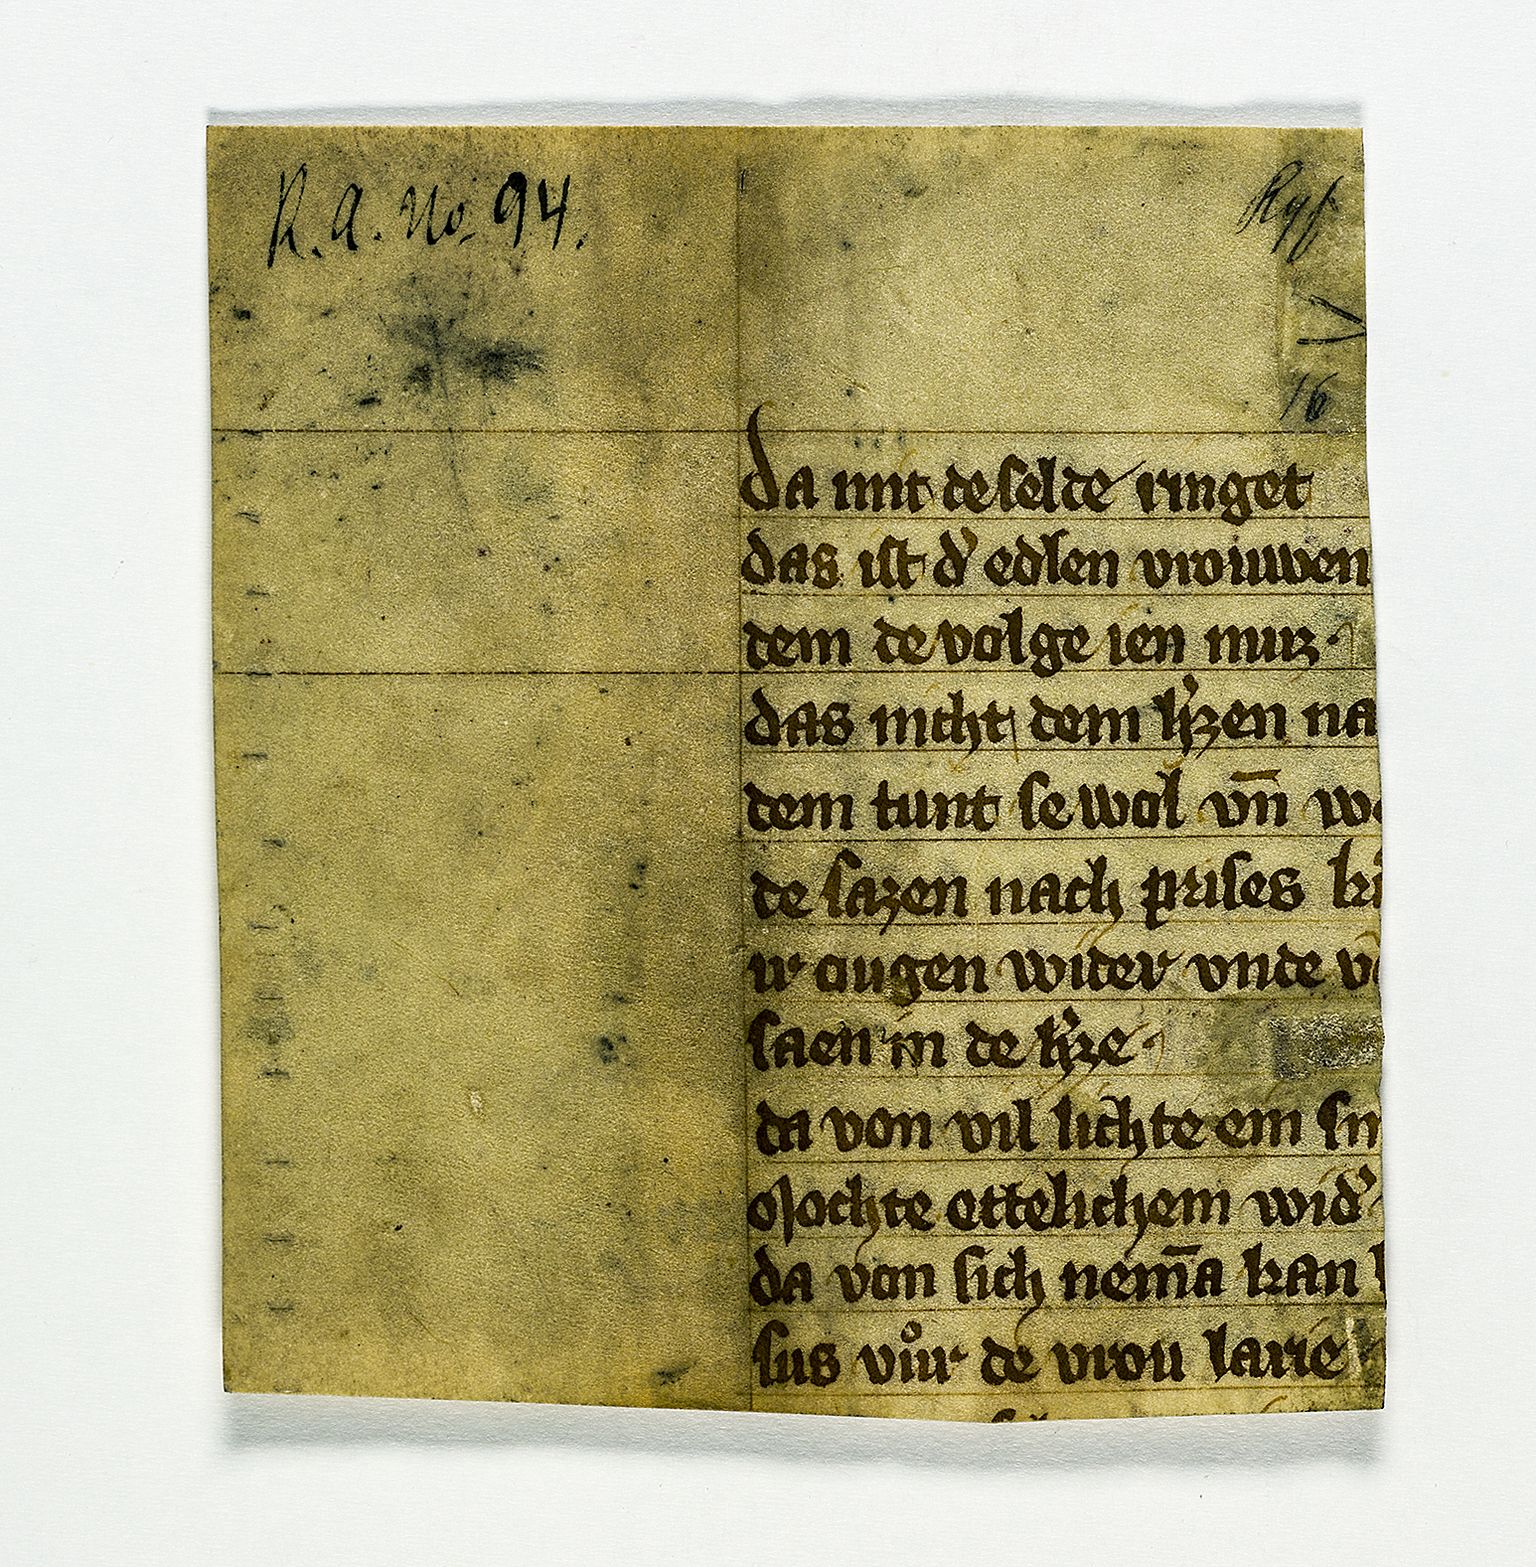 R. A. No. 94.
16
da mit de selde ringet
das ist d' edlen vrouwen
dem de volge ien muz·
das nicht dem h'zen na
dem tunt se wol vn̄ we
de sazen nach prises
ir ougen wider vnde
saen in de h'ze·
da von vil lichte em
Mochte ettelichem wid'
da von sich nem̄a kan
sus vůr de vrou larie